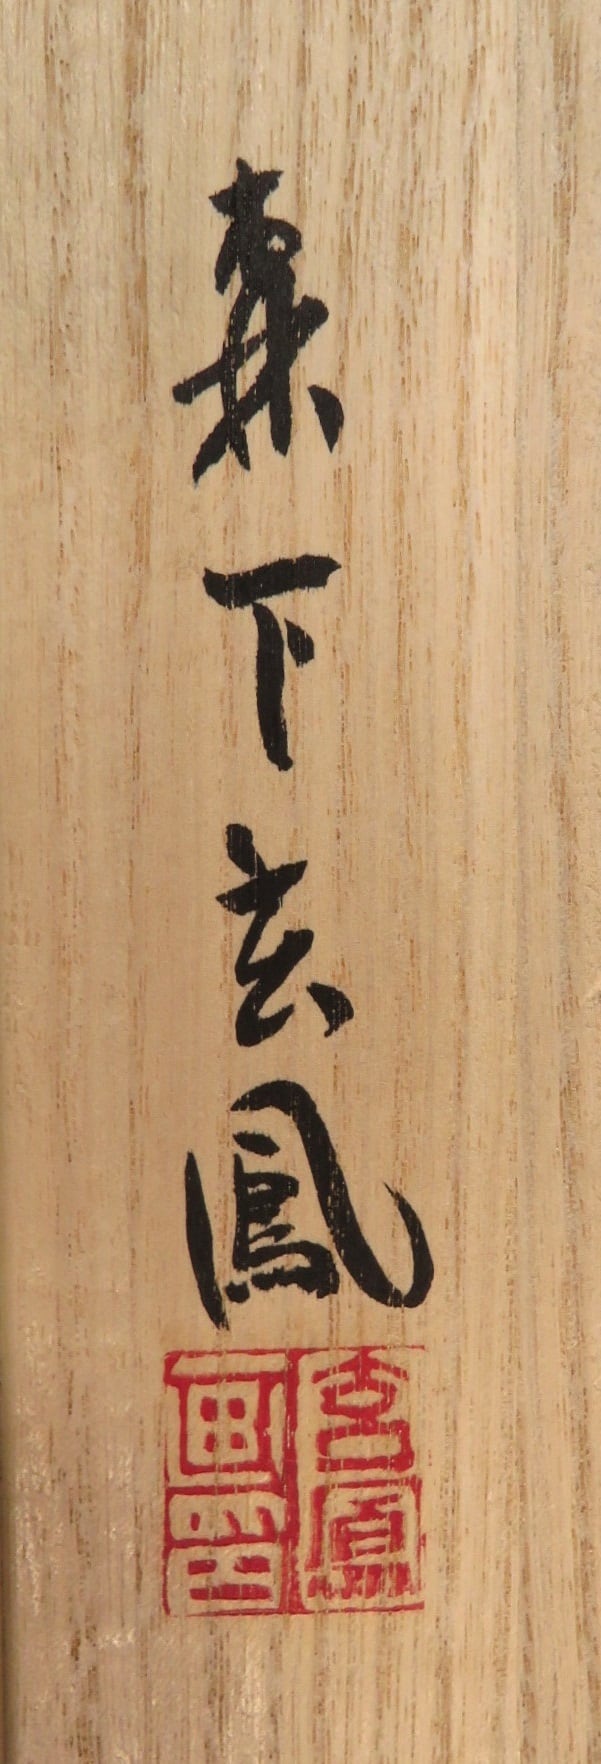 森下玄鳳
玄鳳画留